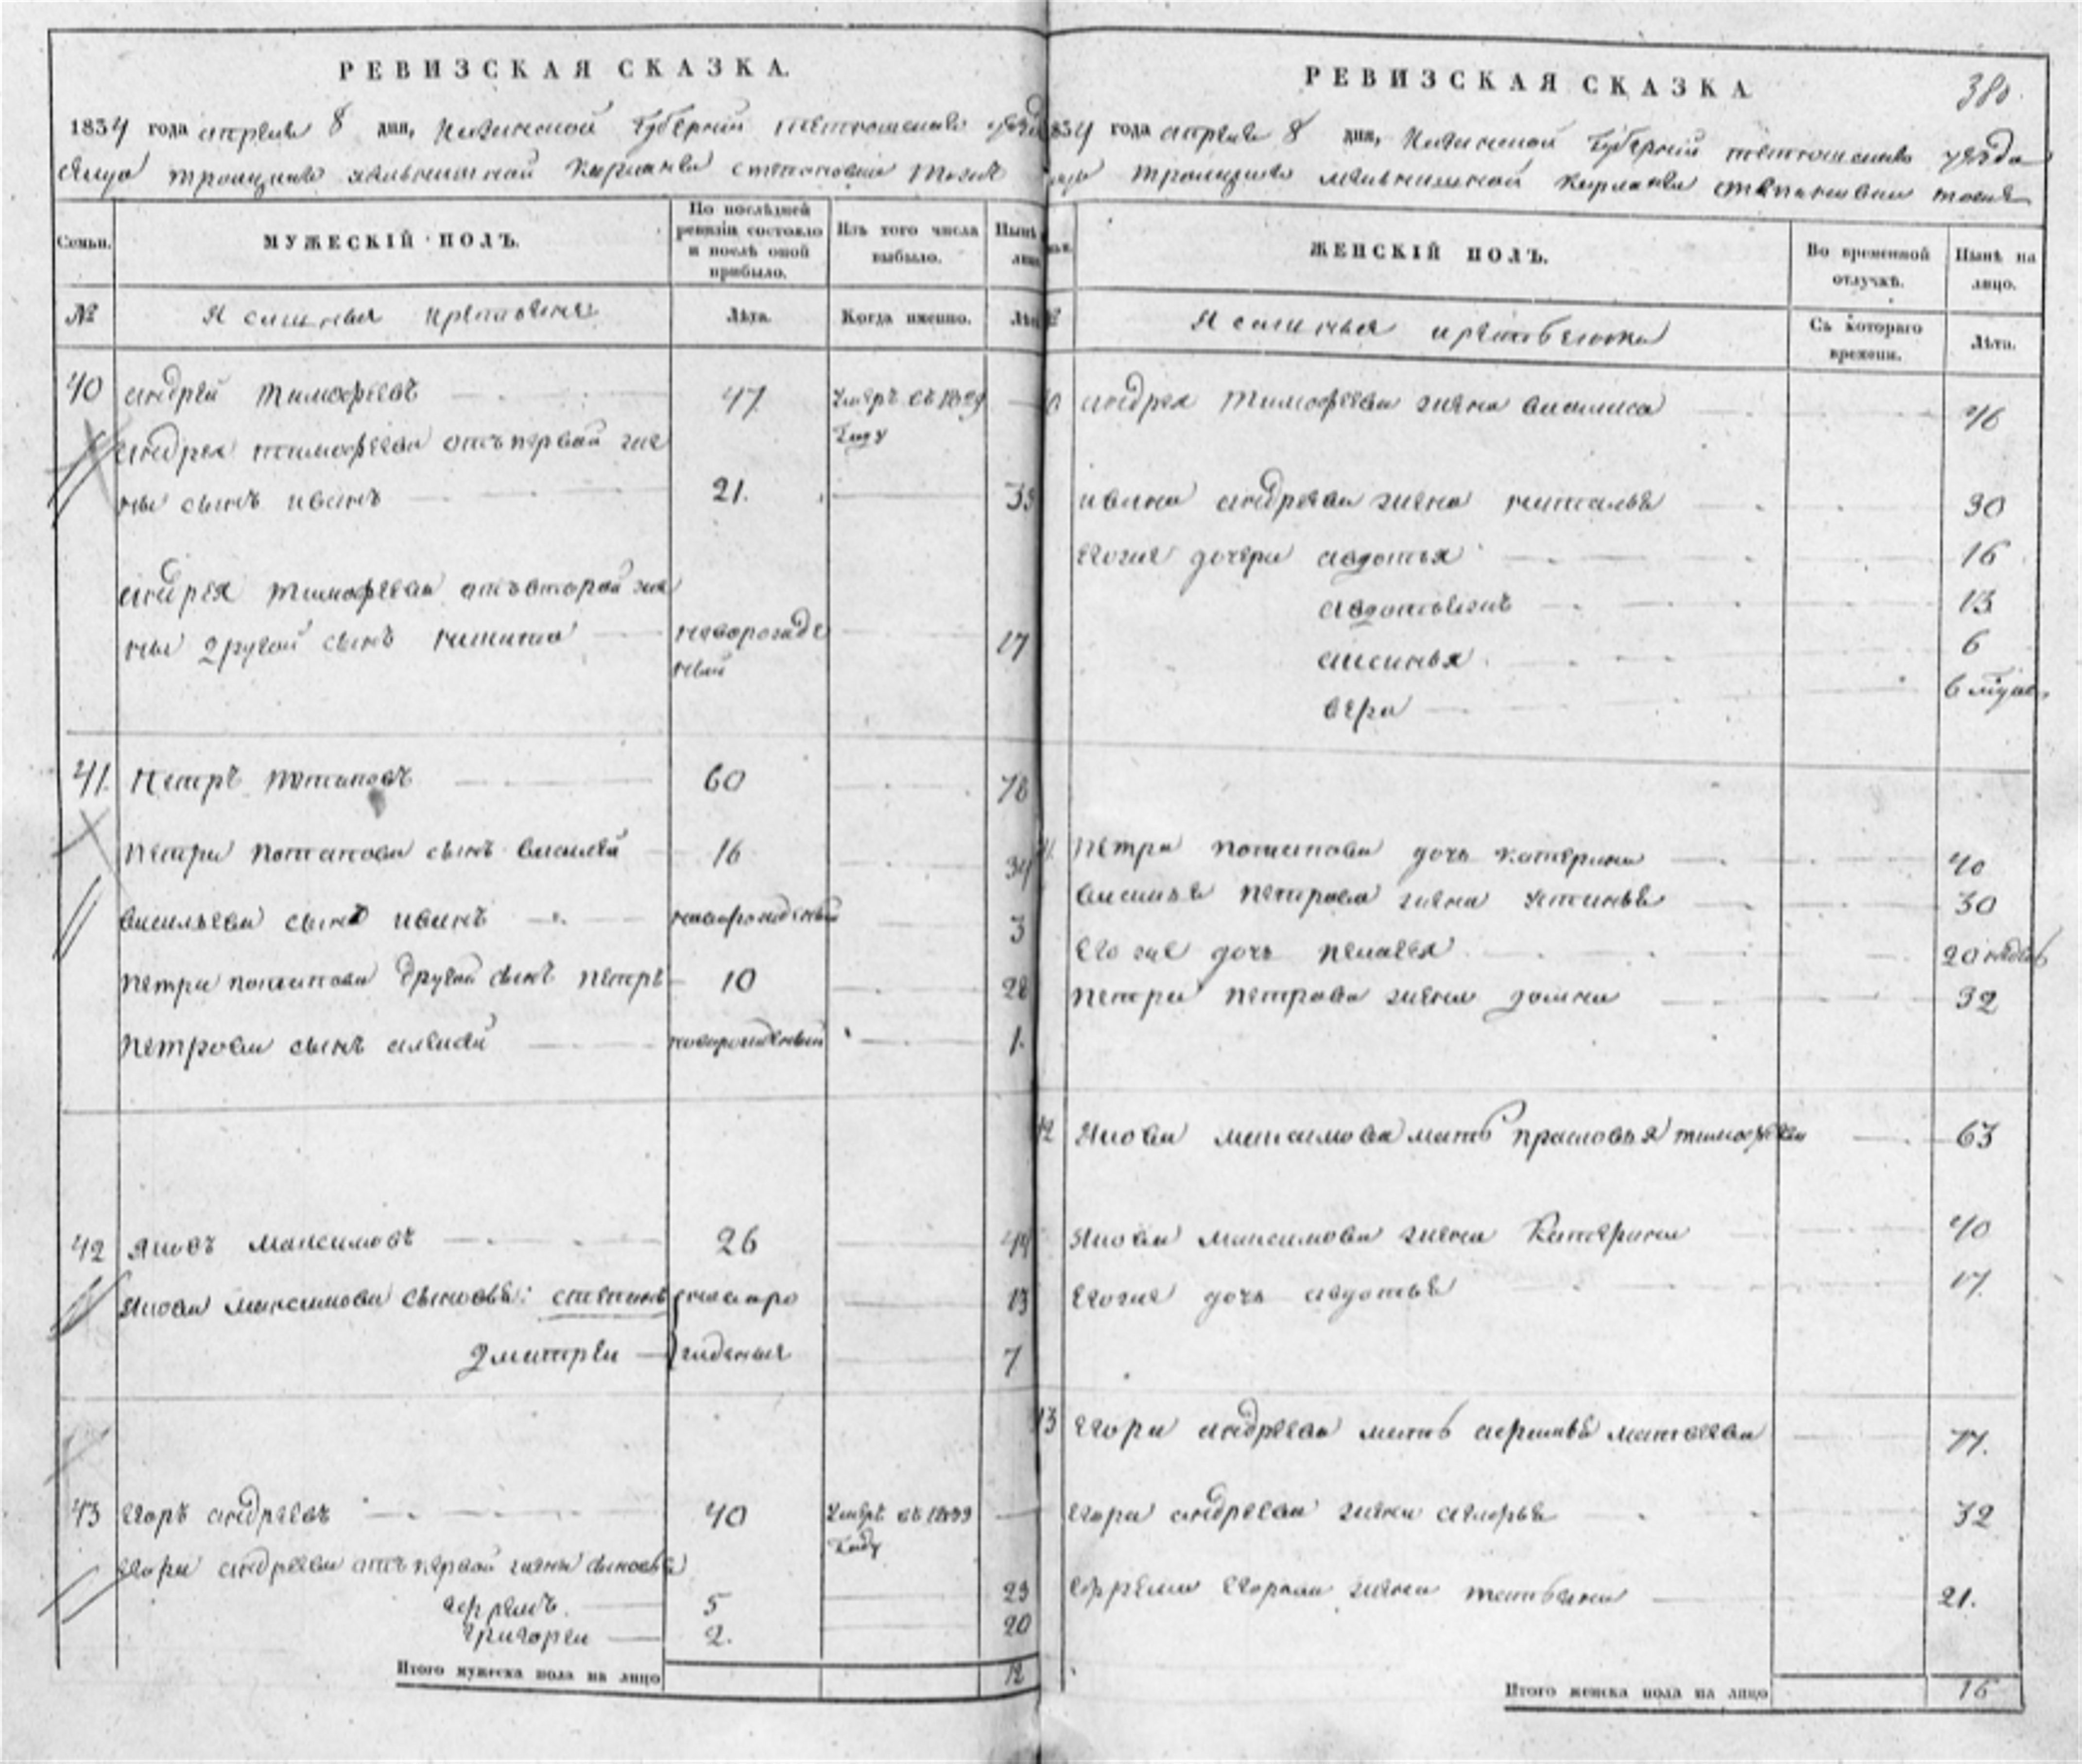 РЕВИЗСКАЯ СКАЗКА.
1834 года апреля 8 дня, Казанской Губернии тетюшскаго уезда
Селца троицкаго
Семьи.
МУЖЕСКІЙ ПОЛЪ.
По послѣдней ревизіи состояло и послѣ оной прибыло.
Изъ того числа выбыло.
Нынѣ на лицо.
№
Ясашныя крестьяня
Лѣта.
Когда именно.
Лѣта
40 андрей тимофеевъ 47 Умеръ въ 1829
Году
андрея тимофеева отъ первой же
ны сынъ иванъ 21. 39
андрея тимофеева отъ второй же
ны другой сынъ никита новорожде 17
ный
41. Петръ потаповъ 60 78
петра потапова сынъ василей 16 34
васильева сынъ иванъ новорожденый 3
петра потапова другой сынъ петръ 10 28
петрова сынъ алексей новорожденый 1.
42 яковъ максимовъ 26 44
якова максимова сыновья: степанъ новоро 13
дмитреи жденыя 7
43 егоръ андреевъ 40 Умеръ въ 1833
Году
егора андреева отъ первой жены сыновья
ефремъ 5 23
григореи 2. 20
Итого мужеска пола на лицо 12
РЕВИЗСКАЯ СКАЗКА
380.
1834 года апреля 8 дня, Казанской Губернии тетюшскаго уезда
троицкаго
ЖЕНСКІЙ ПОЛЪ.
Во временной отлучкѣ.
Нынѣ на лицо.
Ясашныя крестьянки
Съ котораго времени.
Лѣта.
андрея тимофеева жена василиса 46
ивана андреева жена наталья 30
Егоже дочери авдотья 16
13
аксинья 6
вера
петра потапова дочь катерина 40
василья петрова жена устинья 30
Его же дочь пелагея 20 недель
петра петрова жена домна 32
42 Якова максимова мать прасковья тимофеева 63
Якова максимова жена Катерина 40
Егоже дочь авдотья 17.
43 Егора андреева мать матвеева 77.
Егора андреева жена 32
ефрема егорова жена татьяна 21.
Итого женска пола на лицо 16